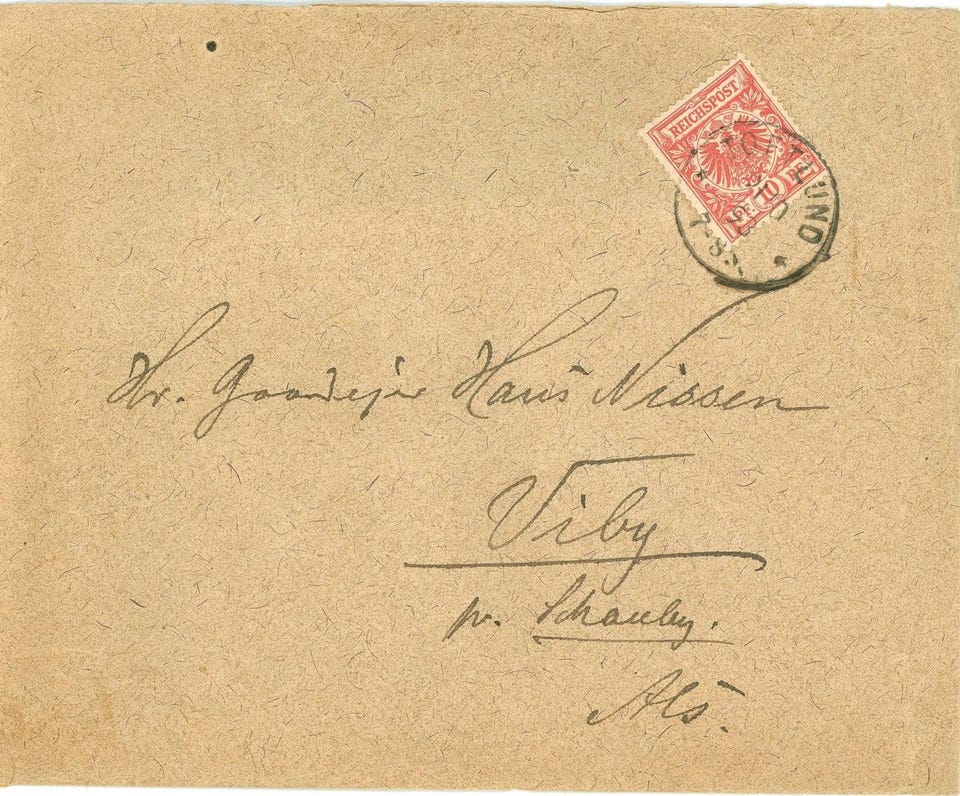 REICHSPOST
10
7-8N
Hr. Gaardejer Hans Nissen
Viby
pr. Schauby.
Als.